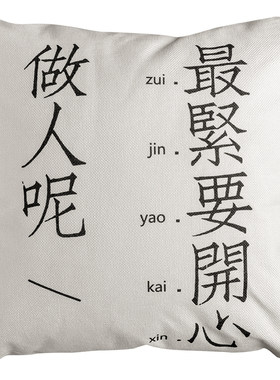 做人呢\
zui.
jin.
yao.
kai.
xin.
最緊要開心